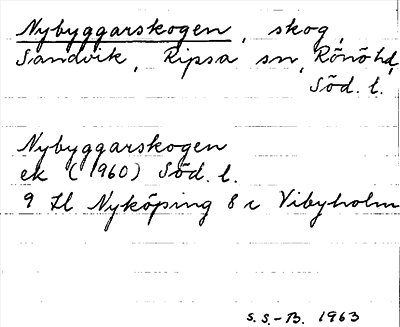 Nybyggarskogen, skog,
Sandvik, Ripsa sn, Rönö hd,
Söd. l.
Nybyggarskogen
ek (1960) Söd. l.
9 H Nyköping 8 c Vibyholm
S. S.-B. 1963